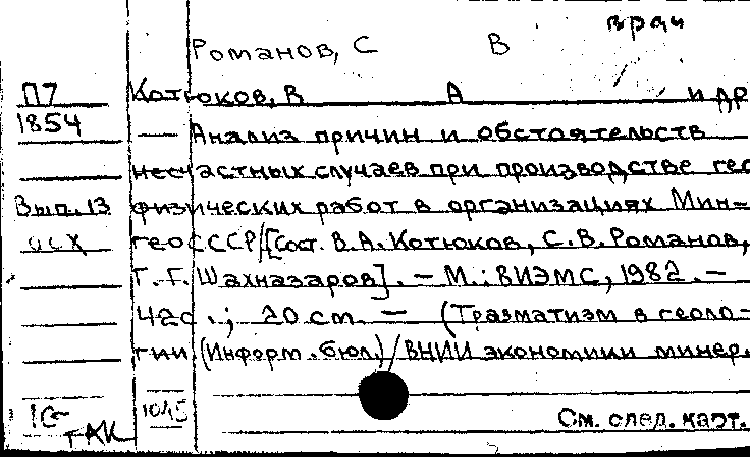 врач
Романов, С В
П7 Котюков, В А и др
1854 — Анализ причин и обстоятельств
несчастных случаев при производстве гео
Вып. 13 физических работ в организациях Мин-
исх гео СССР/[Сост. В.А. Котюков, С.В. Романов,
Г.Г. Шахназаров]. — М.: ВИЭМС, 1982. —
42с.; 20 cm. — (Травматизм в геоло-
гии (Информ. бюл.)/ВНИИ экономики минер.
См. след. карт.